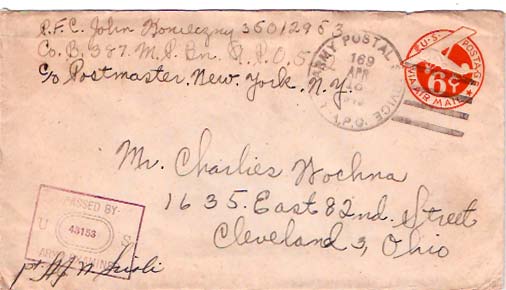 P.F.C. John Konieczny 36012953
Co. B. 387. M.P. Bn. A.P.O.
c/o Postmaster. New. York. N.Y.
ARMY POSTAL SERVICE
169
APR
A.P.O.
U.S. POSTAGE
6¢
VIA AIR MAIL
Mr. Charlies Wochna
1635. East 82nd. Street
Cleveland 3, Ohio
PASSED BY
U S
43153
ARMY EXAMINER